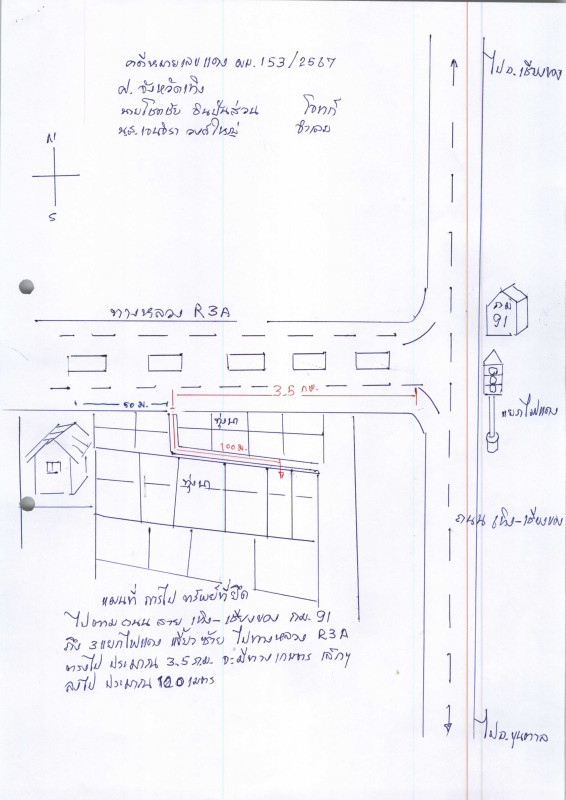 คดีหมายเลขแดง ผบ. 153/2567
ศ. จังหวัดเทิง
นายโชตชัย อินปันส่วน โจทก์
นส. เจนจิรา วงค์ใหญ่ จำเลย
ไป อ. เชียงของ
N
S
ทางหลวง R3A
กม
91
3.5 กม.
50 ม.
แยกไฟแดง
ทุ่งนา
100 ม.
ทุ่งนา
ถนน เทิง-เชียงของ
แผนที่ การไป ทรัพย์ที่ยึด
ไปตาม ถนน สาย เทิง-เชียงของ กม. 91
ถึง 3แยกไฟแดง เลี้ยวซ้าย ไปทางหลวง R3A
ตรงไป ประมาณ 3.5 ก.ม. จะมีทางเกษตร เล็กๆ
ลงไป ประมาณ 100 เมตร
ไป อ. ขุนตาล